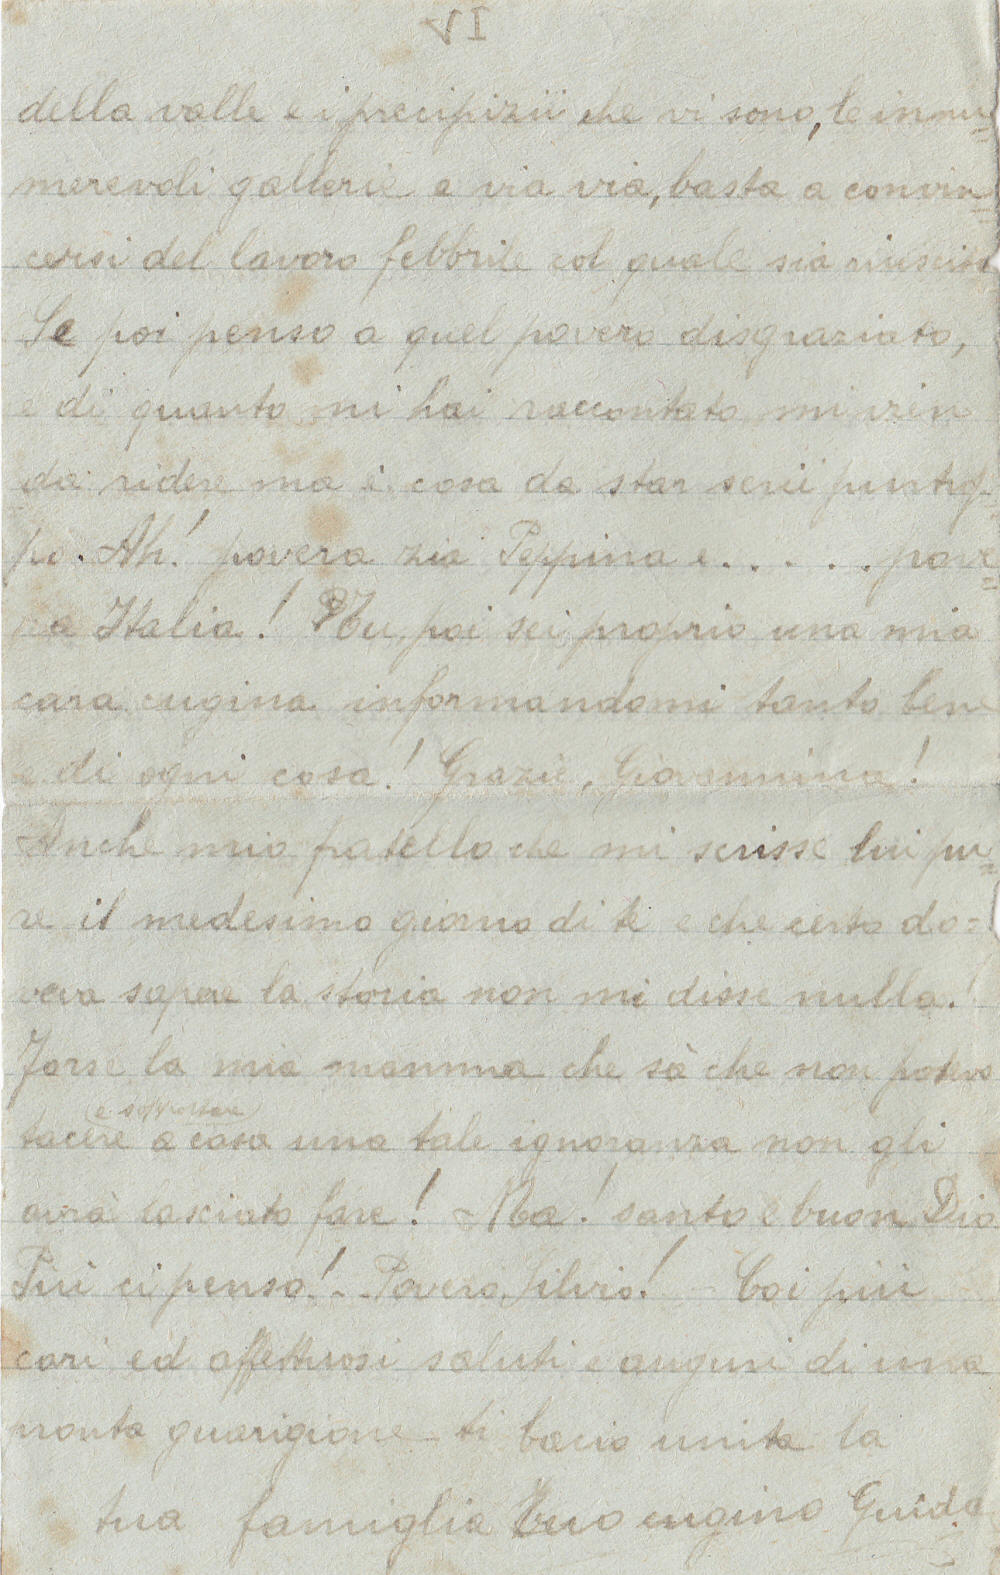 VI
della valle e i precipizii che vi sono, le innu=
merevoli gallerie e via via, basta a convin=
cersi del lavoro febbrile col quale sia riuscito
Se poi penso a quel povero disgraziato,
e di quanto mi hai raccontato mi vien
da ridere ma è cosa da star serii purtrop=
po. Ah! povera zia Peppina e . . . . . pove=
ra Italia! Tu poi sei proprio una mia
cara cugina informandomi tanto bene
e di ogni cosa! Grazie, Giovannina!
Anche mio fratello che mi scrisse lui pu=
re il medesimo giorno di te e che certo do=
veva sapere la storia non mi disse nulla!
Forse la mia mamma che sà che non potevo
(e sopportare)
tacere a casa una tale ignoranza non gli
avrà lasciato fare! Ma! santo e buon Dio
Più ci penso! . . Povero Silvio! Coi più
cari ed affettuosi saluti e auguri di una
pronta guarigione ti bacio unita la
tua famiglia Tuo cugino Guido